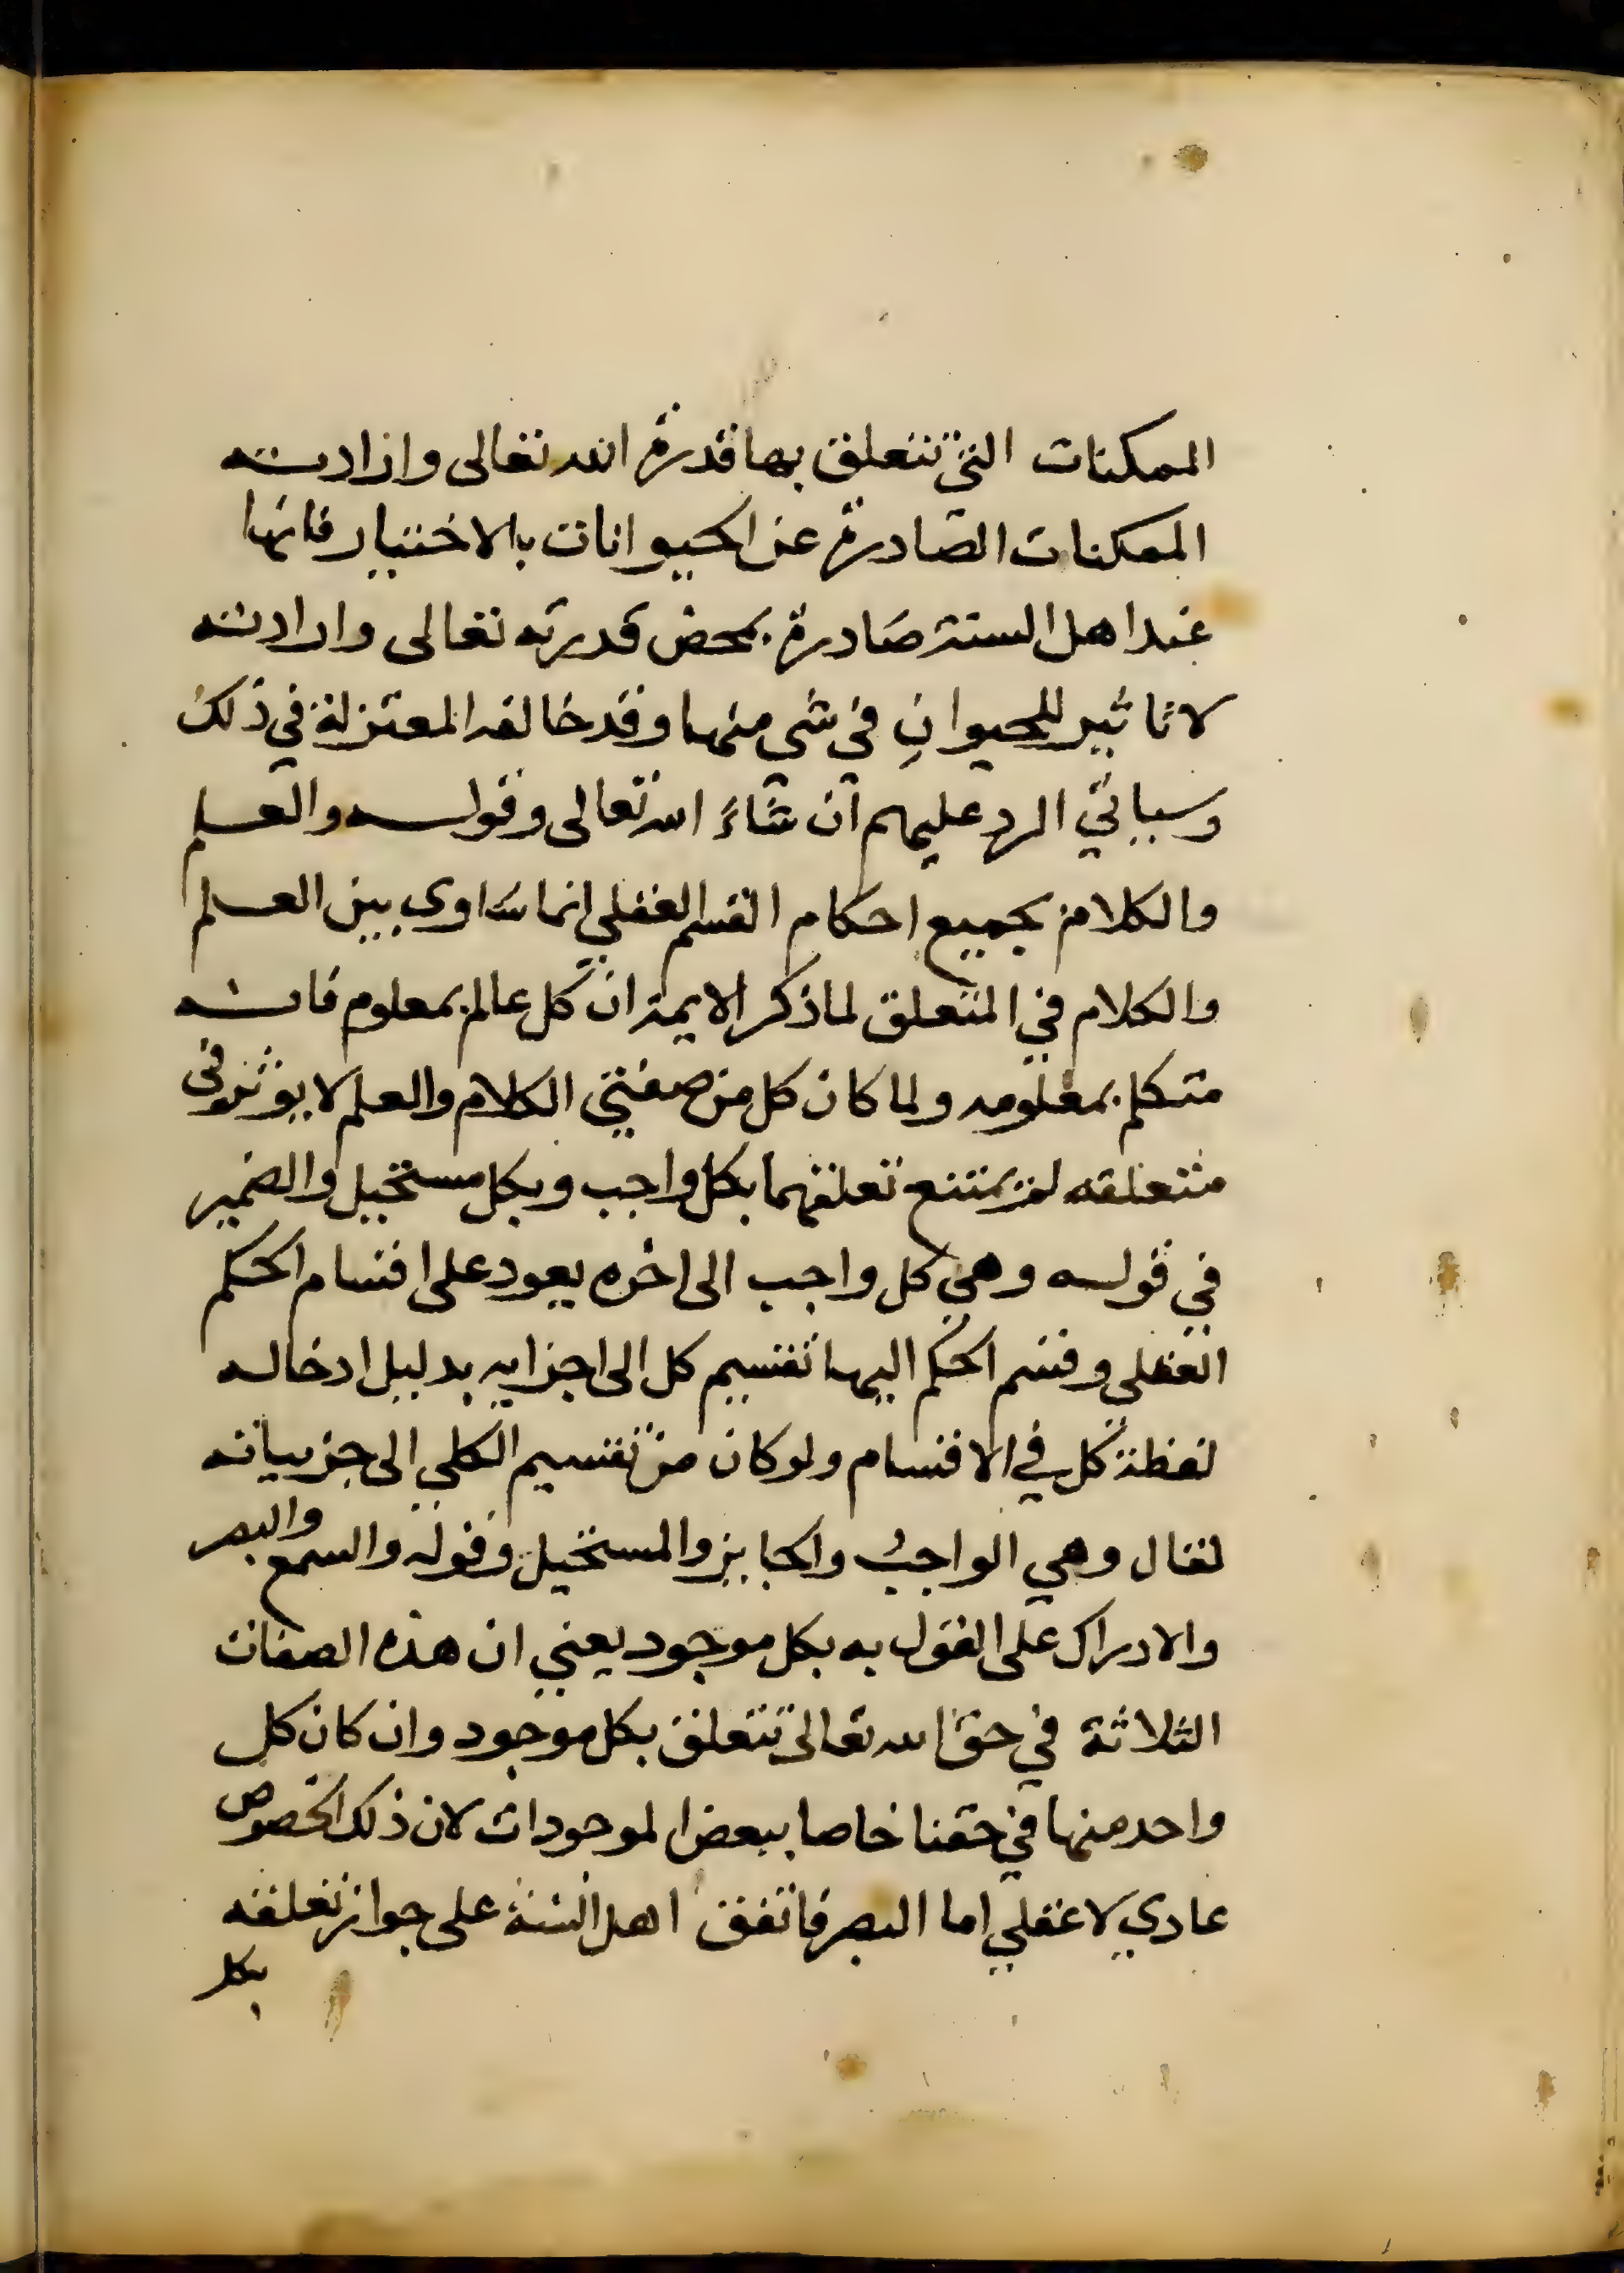 الممكنات التي تتعلق بها قدرة الله تعالى وارادته
الممكنات الصادرة عن الحيوانات بالاختيار فانها
عند اهل السنة صادرة بمحض قدرته تعالى وارادته
لا تاثير للحيوان في شي منها وقد خالف المعتزلة في ذلك
وسياتي الرد عليهم ان شاء الله تعالى وقوله والعلم
والكلام بجميع احكام القسم العقلي انما ساوى بين العلم
والكلام في المتعلق لما ذكر الايمة ان كل عالم بمعلوم فانه
متكلم بمعلومه ولما كان كل من صفتي الكلام والعلم لا يوثر في
متعلقه لم يمتنع تعلقهما بكل واجب وبكل مستحيل والضمير
في قوله وهي كل واجب الى اخره يعود على اقسام الحكم
العقلي وقسم الحكم اليها تقسيم كل الى اجزايه بدليل ادخاله
لفظة كل في الاقسام ولو كان من تقسيم الكلي الى جزيياته
لقال وهي الواجب والجايز والمستحيل وقوله والسمع والبصر
والادراك على القول به بكل موجود يعني ان هذه الصفات
الثلاثة في حق الله تعالى تتعلق بكل موجود وان كان كل
واحد منها في حقنا خاصا ببعض الموجودات لان ذلك الخصوص
عادي لا عقلي اما البصر فاتفق اهل السنة على جواز تعلقه
بكل